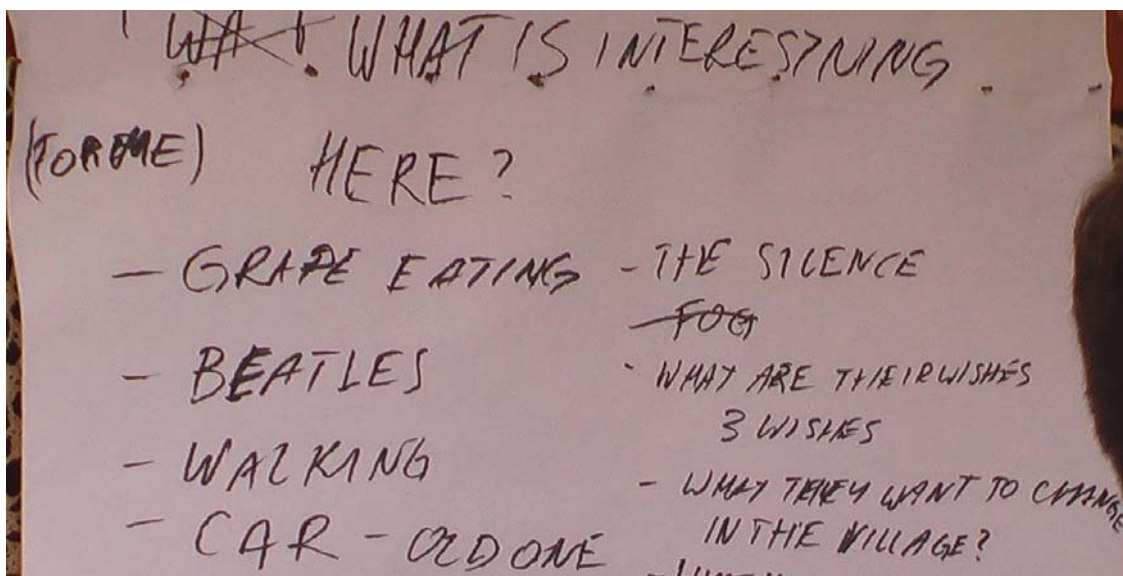 WHAT IS INTERESTNING
(FOR ME) HERE?
- GRAPE EATING
- BEATLES
- WALKING
- CAR - OLD ONE
- THE SILENCE
- FOG
- WHAT ARE THEIR WISHES
3 WISHES
- WHAT THEY WANT TO CHANGE
IN THE VILLAGE?